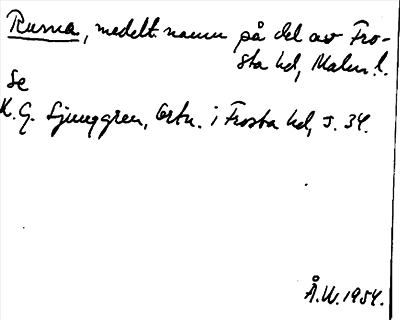 Rusma, medelt. namn på del av Fro-
sta hd, Malm. l.
Se
K. G. Ljunggren, Ortn. i Frosta hd, s. 34.
Å.W. 1954.